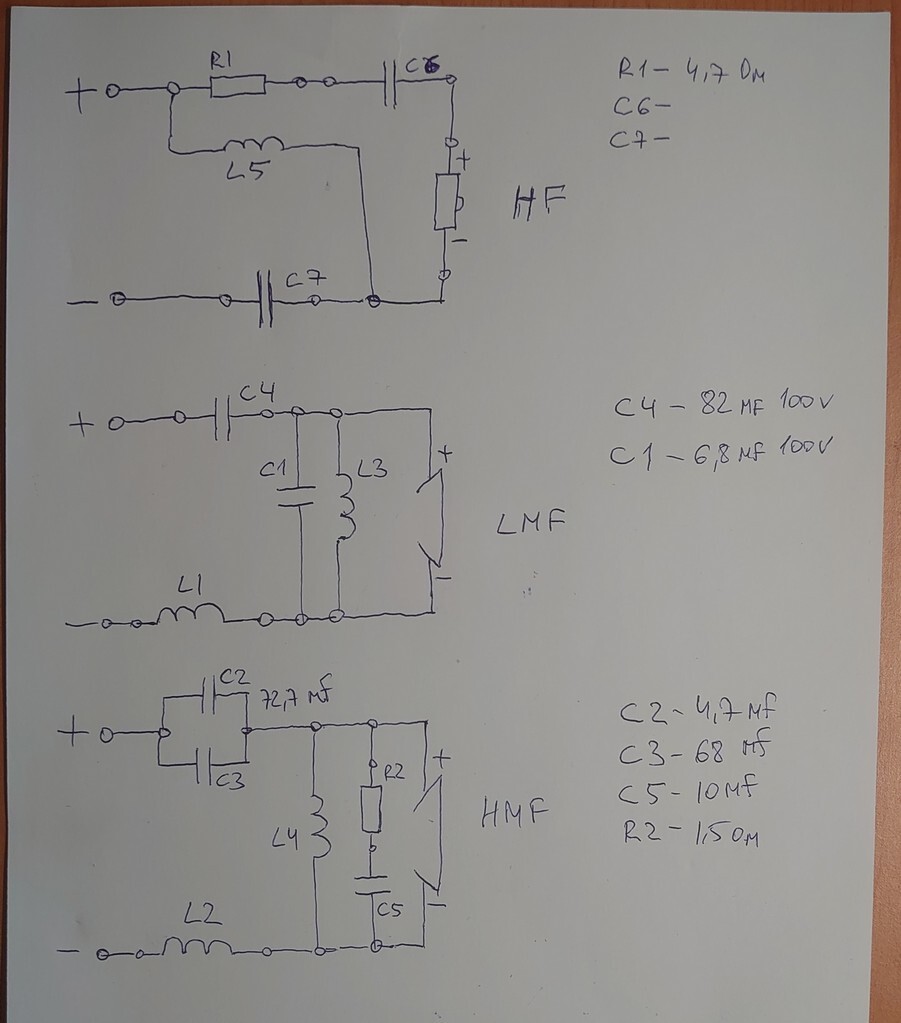 R1
C6
R1 - 4,7 Ом
+
C6 -
C7 -
L5
+
HF
-
C7
-
C4
C4 - 82 MF 100V
+
+
C1 - 6,8 MF 100V
C1
L3
LMF
L1
-
-
C2
72,7 Mf
C2 - 4,7 Mf
+
C3 - 68 Mf
+
R2
C3
C5 - 10 Mf
HMF
R2 - 1,5 Ом
L4
C5
-
L2
-